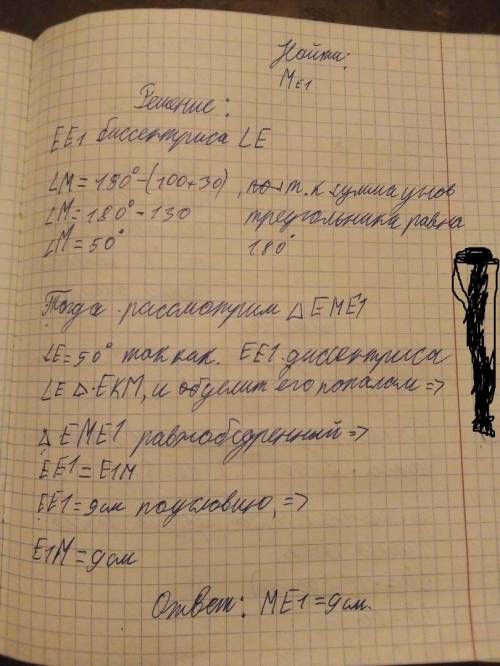 Найти:
ME1
Решение:
EE1 биссектриса ∠E
∠M = 180° - (100+30), т. к сумма углов
∠M = 180° - 130 треугольника равна
∠M = 50° 180°
Тогда рассмотрим △ EME1
∠E = 50° так как. EE1 биссектриса
∠E △ EKM, и его попалам =>
△ EME1 равнобедренный =>
EE1 = E1M
EE1 = 9см по условию, =>
E1M = 9см
Ответ: ME1 = 9см.